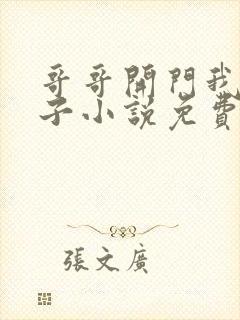 哥哥開門我
子小說免費
張文廣